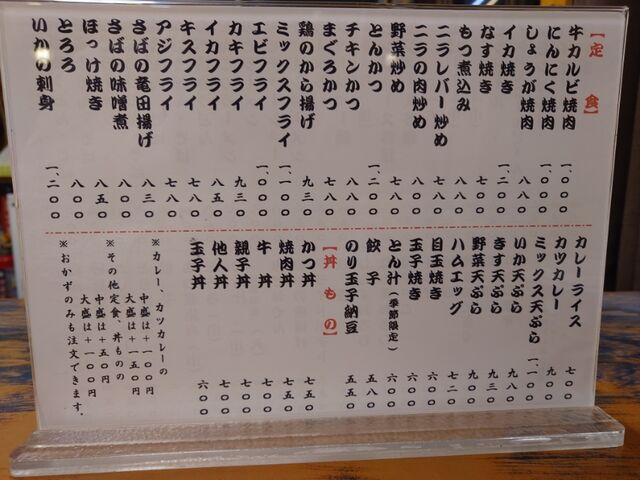 【定食】
牛カルビ焼肉 一、〇〇〇
にんにく焼肉 一、〇〇〇
しょうが焼肉 八八〇
イカ焼き 一、二〇〇
なす焼き 七〇〇
もつ煮込み 八八〇
ニラレバー炒め 八八〇
ニラの肉炒め 八八〇
野菜炒め 七八〇
とんかつ 一、二〇〇
チキンかつ 八八〇
まぐろかつ 七八〇
鶏のから揚げ 九三〇
ミックスフライ 一、一〇〇
エビフライ 一、〇〇〇
カキフライ 九三〇
イカフライ 八五〇
キスフライ 七八〇
アジフライ 七八〇
さばの竜田揚げ 八三〇
さばの味噌煮 八〇〇
ほっけ焼き 八五〇
とろろ 八〇〇
いかの刺身 一、二〇〇
カレーライス 七〇〇
カツカレー 九〇〇
ミックス天ぷら 一、一〇〇
いか天ぷら 九八〇
きす天ぷら 九三〇
野菜天ぷら 九〇〇
ハムエッグ 七二〇
目玉焼き 六〇〇
玉子焼き 六〇〇
とん汁(季節限定) 六〇〇
餃子 五八〇
のり玉子納豆 五五〇
【丼もの】
かつ丼 七五〇
焼肉丼 七五〇
牛丼 七〇〇
親子丼 七〇〇
他人丼 七〇〇
玉子丼 六〇〇
※カレー、カツカレーの
中盛は+一〇〇円
大盛は+一五〇円
※その他定食、丼ものの
中盛は+五〇円
大盛は+一〇〇円
※おかずのみも注文できます。